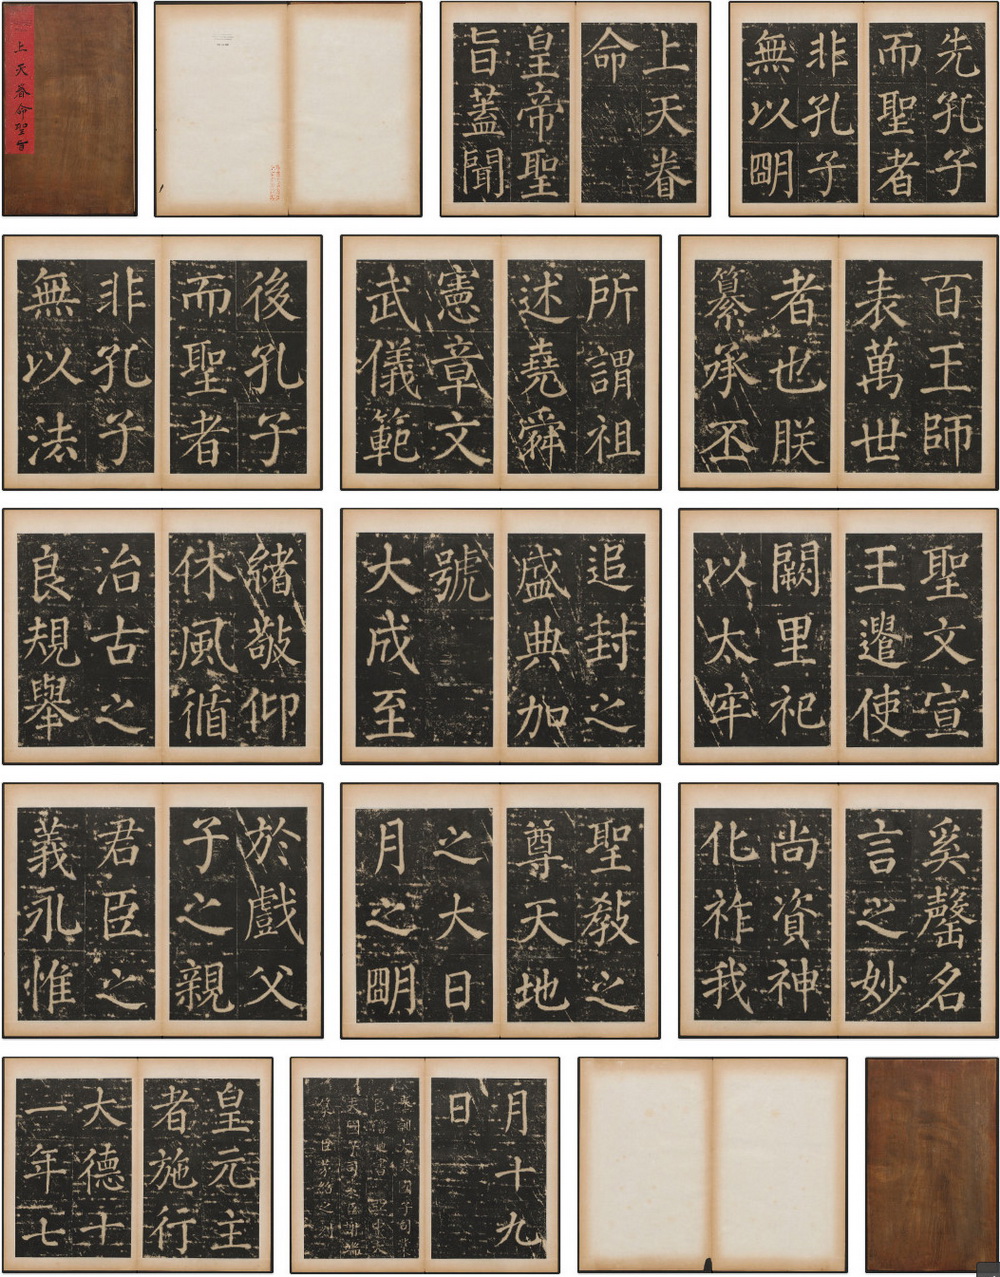 上天眷命聖旨
上天眷
命
皇帝聖
旨蓋聞
先孔子
而聖者
非孔子
無以朙
後孔子
而聖者
非孔子
無以法
所謂祖
述堯舜
憲章文
武儀範
百王師
表萬世
者也朕
纂承丕
緒敬仰
休風循
治古之
良規舉
追封之
盛典加
號
大成至
聖文宣
王遣使
闕里祀
以太牢
於戲父
子之親
君臣之
義永惟
聖教之
尊天地
之大日
月之朙
奚罄名
言之妙
尚資神
化祚我
皇元主
者施行
大德十
一年七
月十九
日